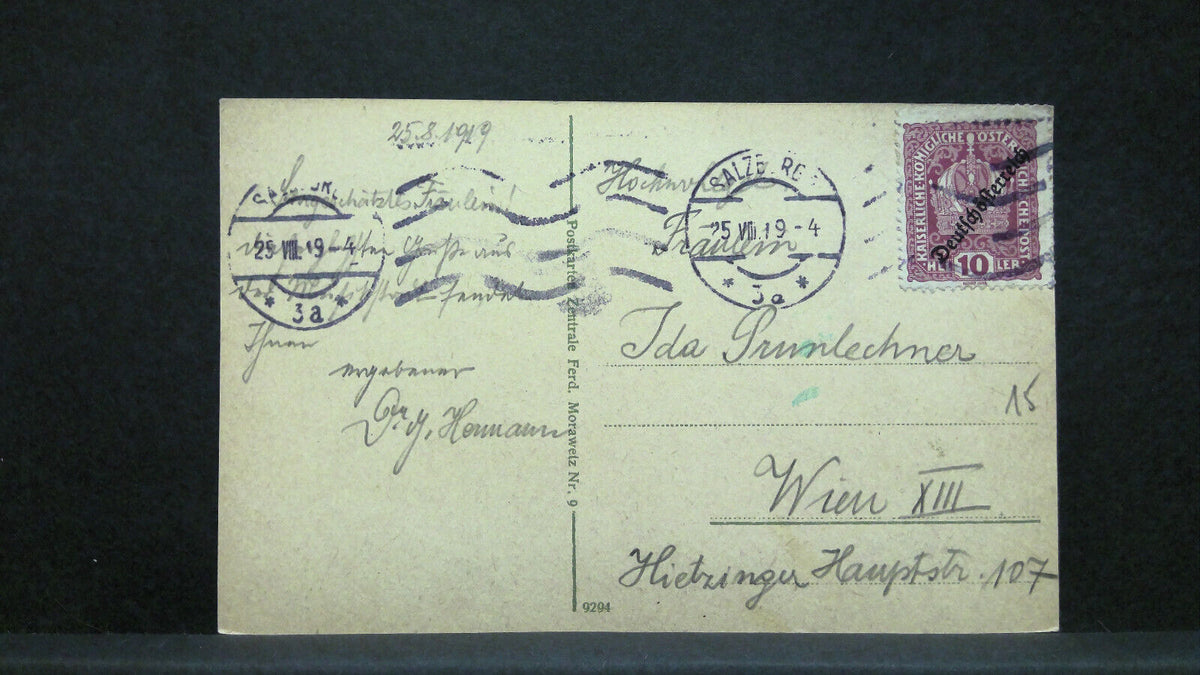 25.8.1919
Hochgeschätztes Fräulein!
Grüße aus
sendet
Ihnen
ergebener
Dr. J. Hermann
Postkarten Zentrale Ferd. Morawetz Nr. 9
9294
SALZB
25 VIII. 19 - 4
* 3a *
25 VIII. 19 - 4
* 3a *
KAISERLICHE KÖNIGLICHE ÖSTERREICHISCHE POST
Deutschösterreich
10
HELLER
Fräulein
Ida Prunlechner
15
Wien XIII
Hietzinger Hauptstr. 107